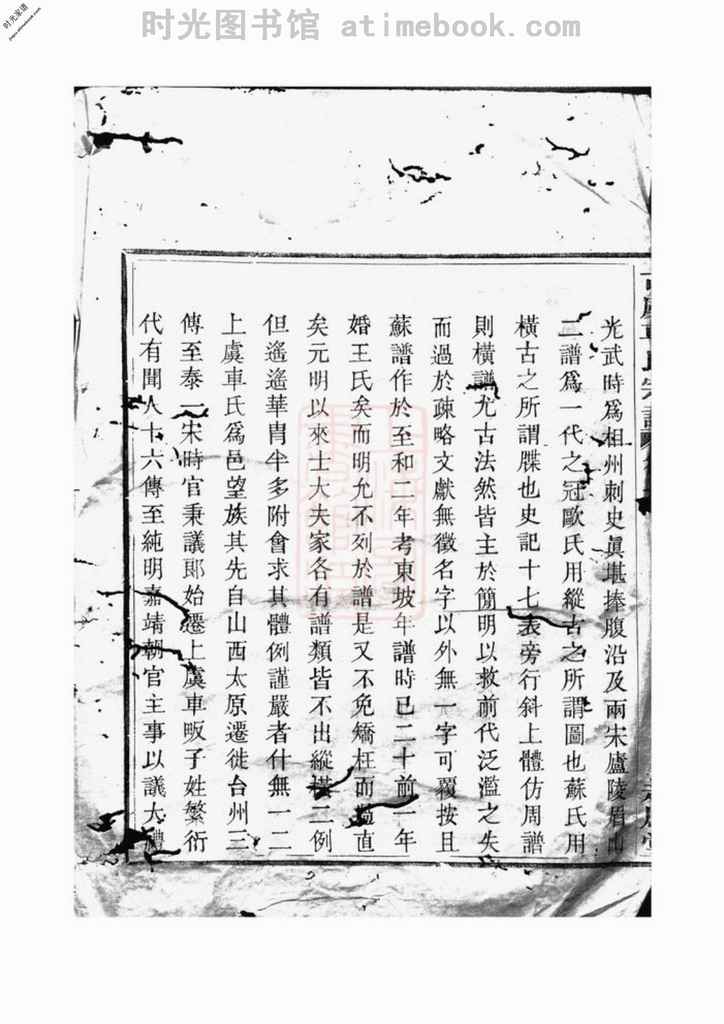 时光图书馆 atimebook.com
时光家谱
光武時爲相州刺史眞堪捧腹沿及兩宋廬陵眉山
二譜爲一代之冠歐氏用縱古之所謂圖也蘇氏用
橫古之所謂牒也史記十七表旁行斜上體仿周譜
則橫譜尤古法然皆主於簡明以救前代泛濫之失
而過於疎略文獻無徵名字以外無一字可覆按且
蘇譜作於至和二年考東坡年譜時已二十前一年
婚王氏矣而明允不列於譜是又不免矯枉而過直
矣元明以來士大夫家各有譜類皆不出縱橫二例
但遙遙華胄半多附會求其體例謹嚴者什無一二
上虞車氏爲邑望族其先自山西太原遷徙台州三
傳至泰一宋時官秉議郞始遷上虞車畈子姓繁衍
代有聞人十六傳至純明嘉靖朝官主事以議大禮